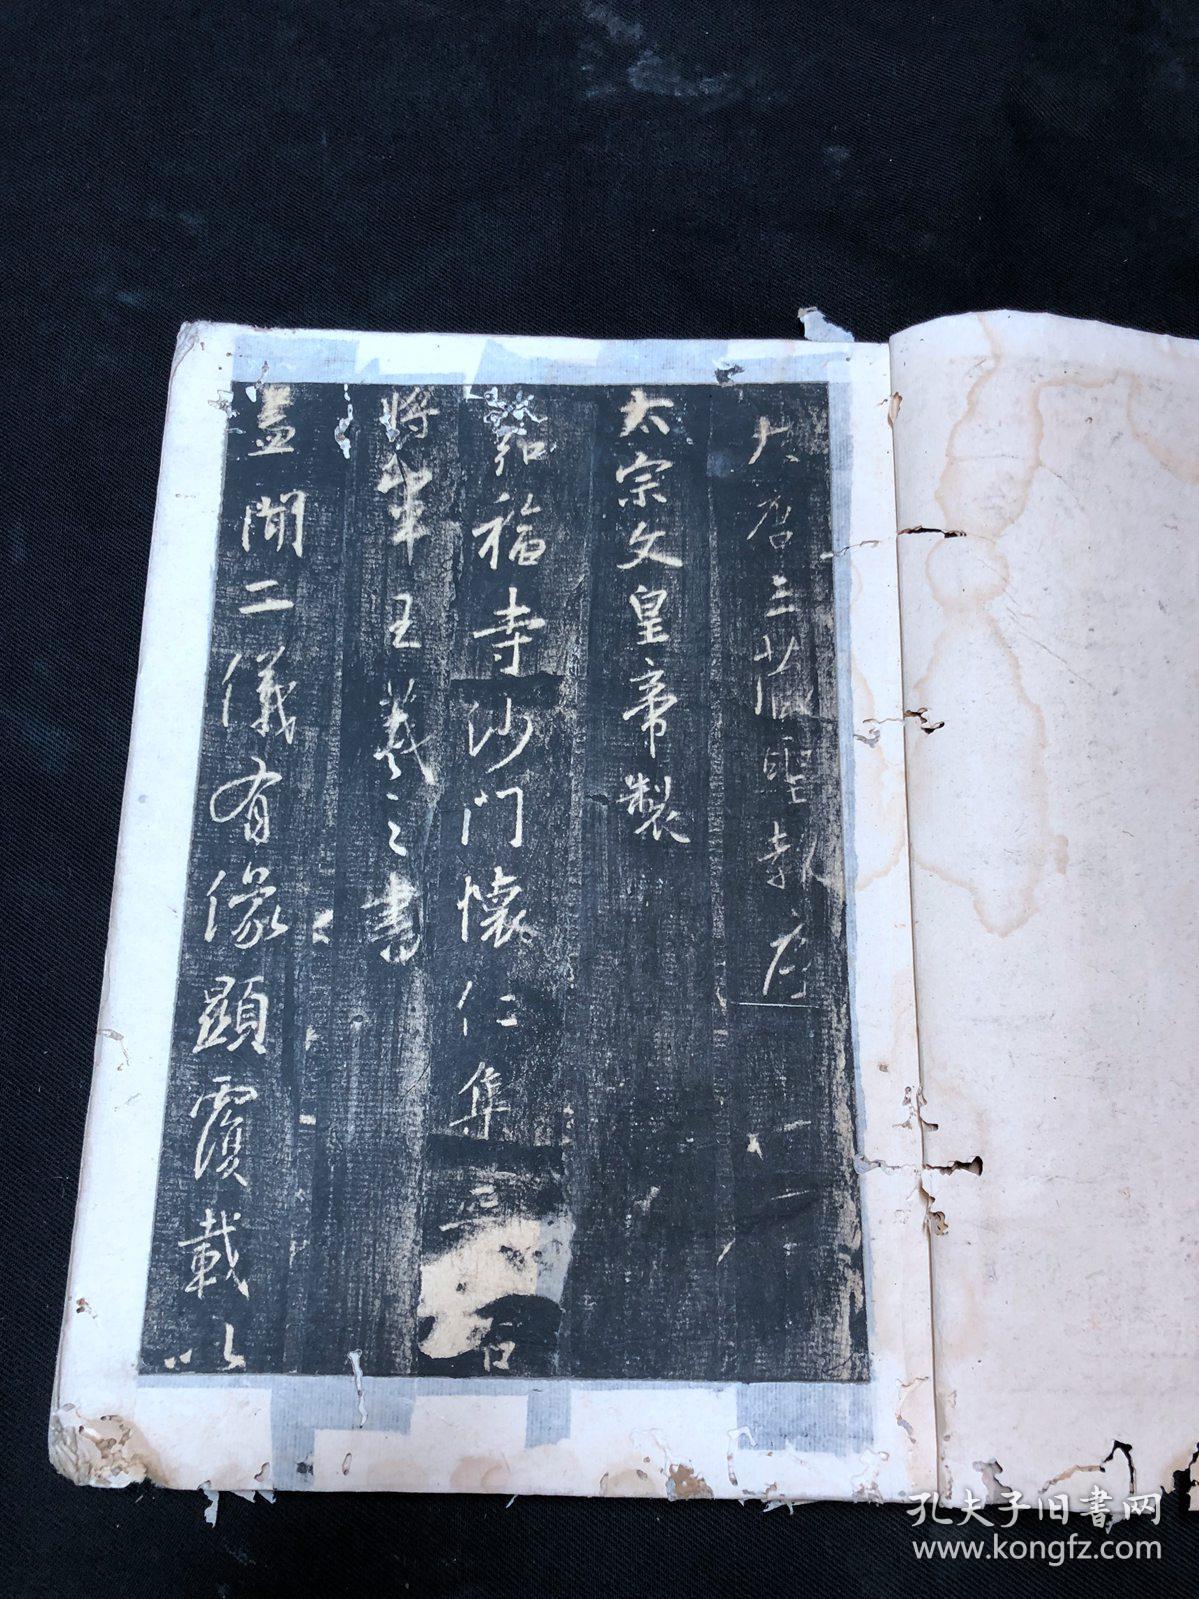 大唐三藏聖教序
太宗文皇帝製
弘福寺沙門懷仁集
將軍王羲之書
蓋聞二儀有像顯覆載以
孔夫子旧書网
www.kongfz.com